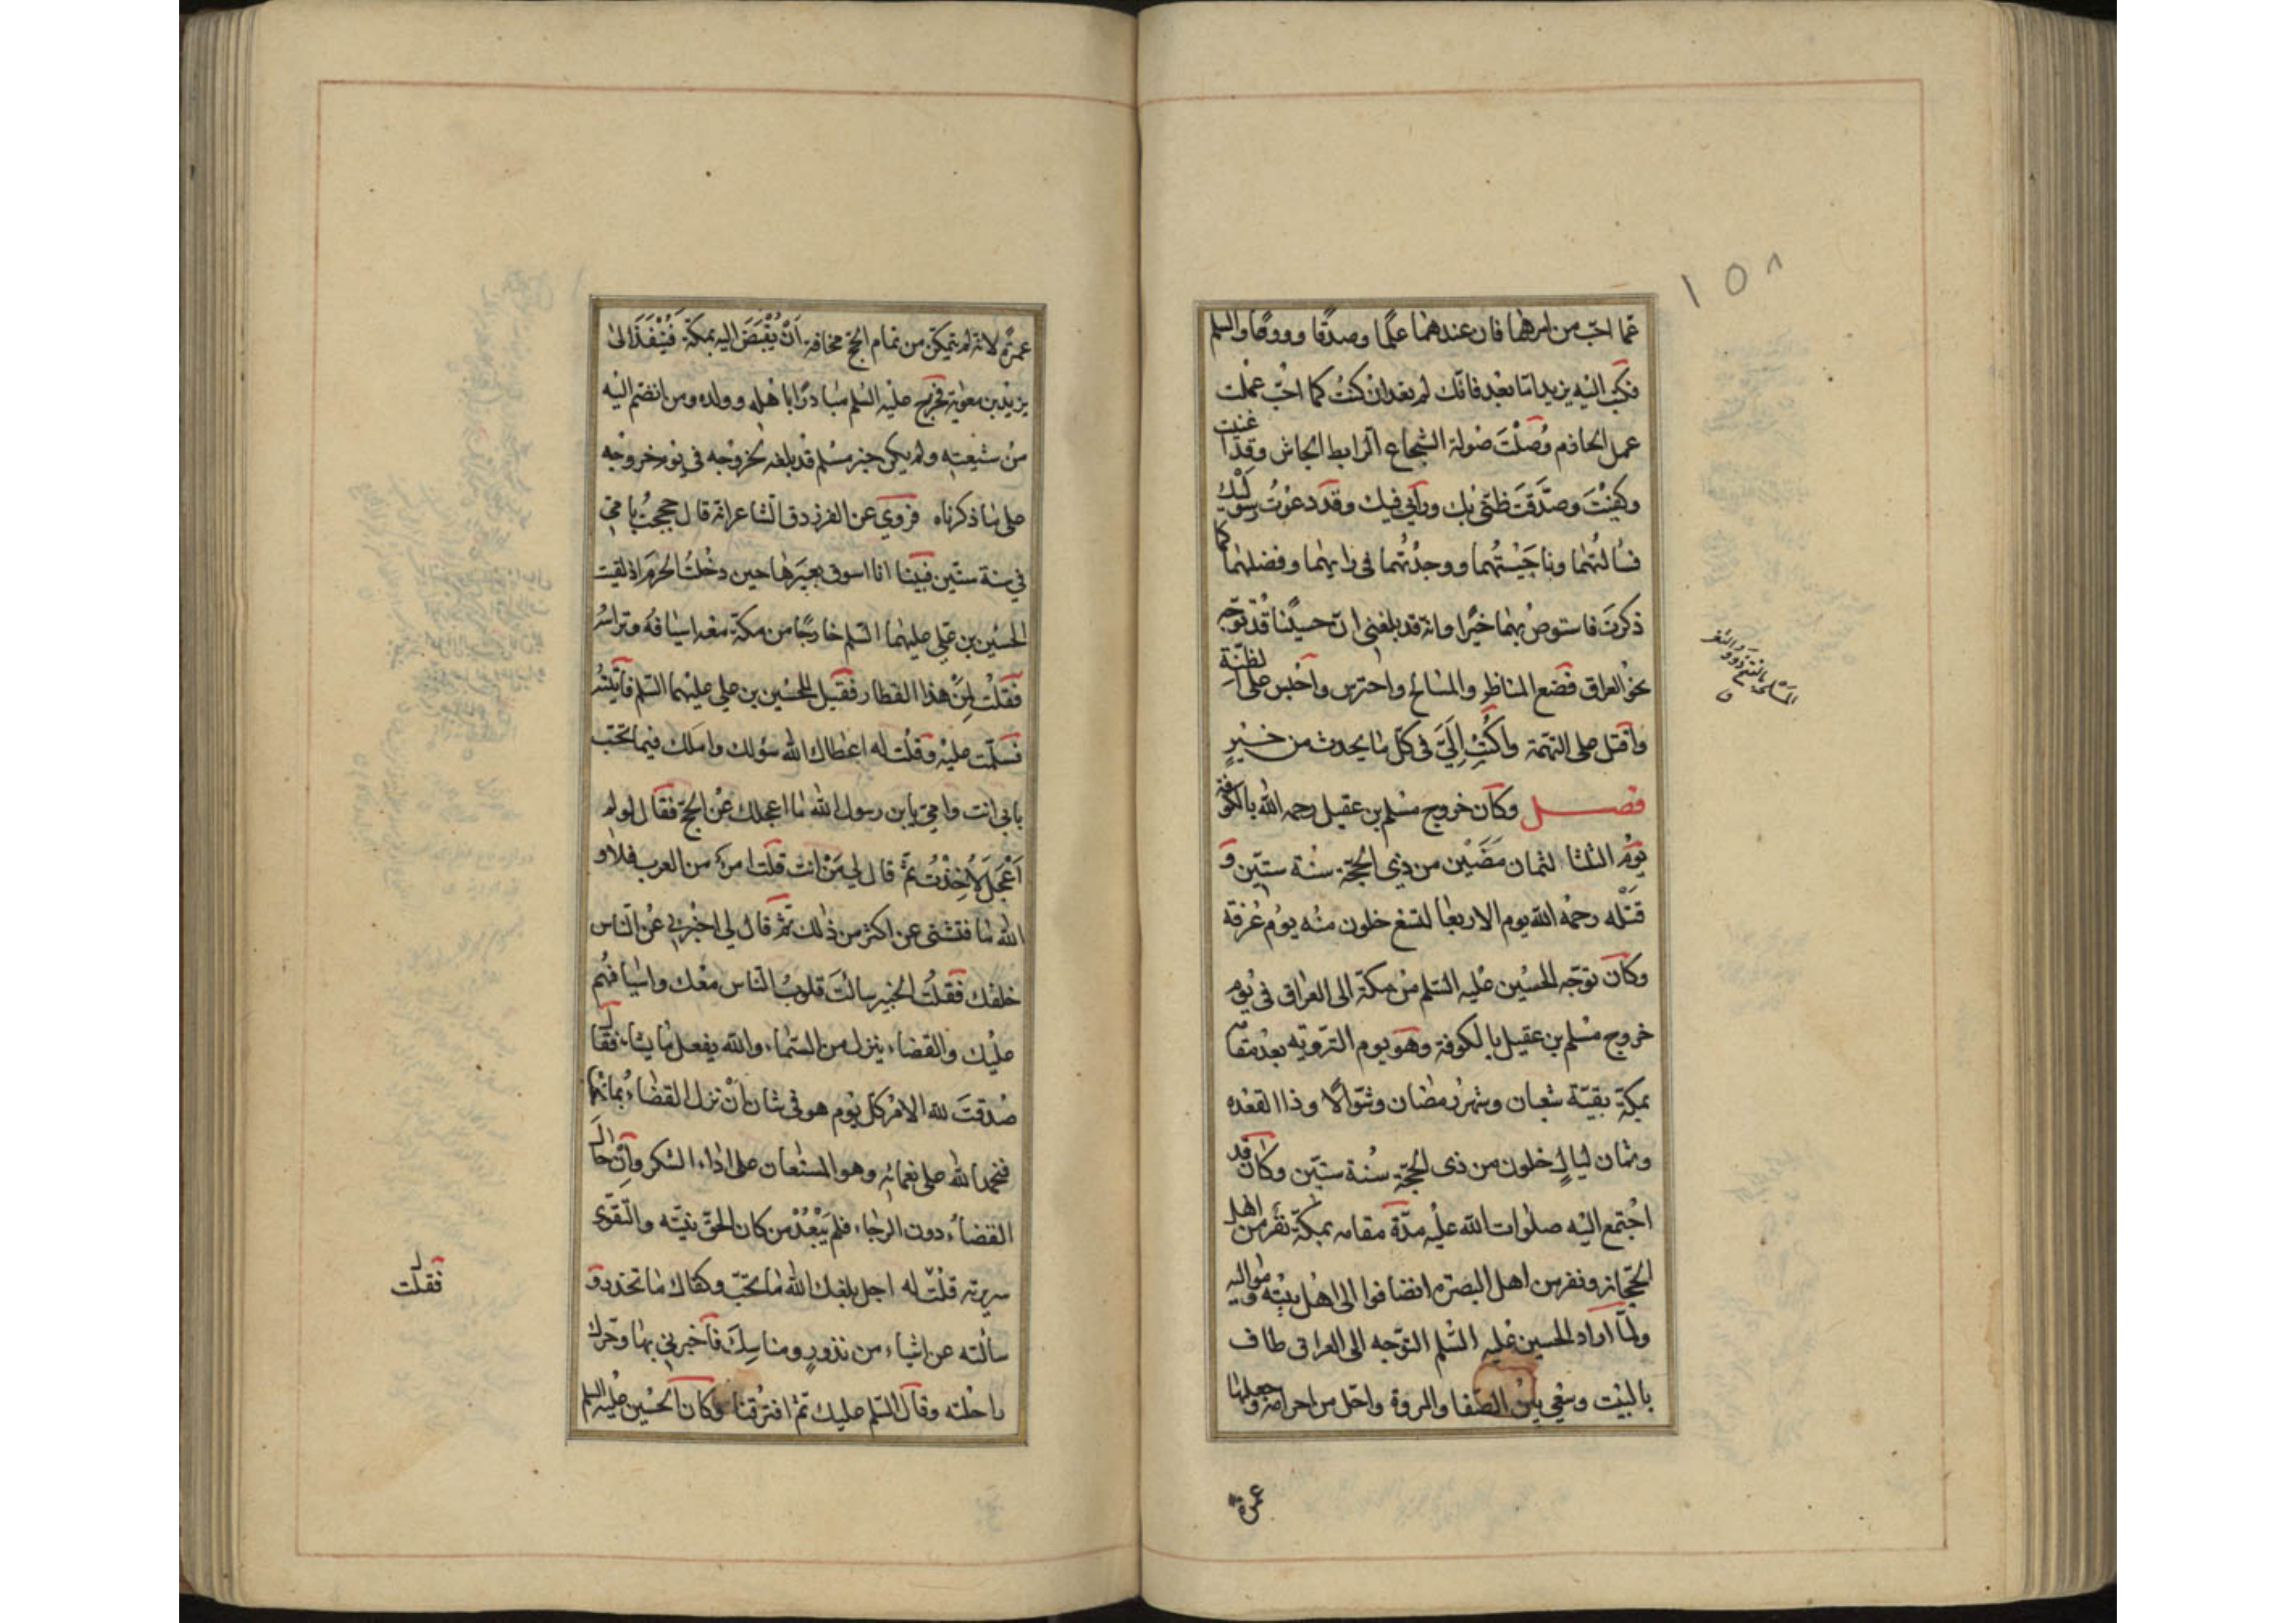 ١٥٨
عما احب من امرهما فان عندهما علما وصدقا وورعا والسلم
فكتب اليه يزيد اما بعد فانك لم تعد ان كنت كما احب عملت
عمل الحازم وصُلْتَ صولة الشجاع الرابط الجاش وقد اغنيت
وكفيْتَ وصدَّقتَ ظني بك ورأيي فيك وقد دعوتُ رسوليك
فسألتهما وناجَيْتُهما ووجدْتُهما في رايهما وفضلهما كما
ذكرتَ فاستوص بهما خيرا وانه قد بلغني ان حسينا قد توجه
نحو العراق فضع المناظر والمسالح واحترس واحبس على الظنّةِ
واقتل على التهمة واكتُبْ اِلَيَّ في كل ما يحدث من خبرٍ
فصل وكان خروج مسلم بن عقيل رحمه الله بالكوفة
يوم الثلثا لثمان مَضَيْن من ذي الحجة سنة ستين و
قتْله رحمه الله يوم الاربعا لتسع خلون منه يوم عرفة
وكان توجّه الحسين عليه السلم من مكة الى العراق في يوم
خروج مسلم بن عقيل بالكوفة وهو يوم التروية بعد مقامه
بمكة بقية شعبان وشهر رمضان وشوّالا وذا القعده
وثمان ليالٍ خلون من ذى الحجة سنة ستين وكان قد
اجتمع اليه صلوات الله عليه مدّة مقامه بمكة نفر من اهل
الحجاز ونفر من اهل البصره انضافوا الى اهل بيته ومواليه
ولمّا اراد الحسين عليه السّلم التوجه الى العراق طاف
بالبيت وسعى بين الصفا والمروة واحل من احرامه وجعلها
عمرة
عمرةً لانه لم يتمكن من تمام الحج مخافة اَنْ يُقْبَضَ اليه بمكة فَيُنْفَذَ الى
يزيد بن معوية فخرج عليه السلم مبادرًا باهله وولده ومن انضم اليه
من شيعته ولم يكن خبر مسلم قد بلغه بخروجه في يوم خروجه
على ما ذكرناه فروي عن الفرزدق الشاعر انه قال حججتُ بامي
في سنة ستين فبينا انا اسوق بعيرها حين دخلتُ الحرم اذ لقيت
الحسين بن علي عليهما السلم خارجًا من مكة معه اسيافه وتراسه
فقلْت لمن هذا القطار فقيل للحسين بن علي عليهما السلم فأتيته
فسلّمت عليه وقلت له اعطاك الله سؤلك واملك فيما تحب
بابي انت وامي يا بن رسول الله ما اعجلك عن الحج فقال لو لم
اَعْجَلْ لَاُخِذْتُ ثمّ قال لي مَنْ انت قلت امرؤ من العرب فلا و
الله ما فتشني عن اكثر من ذلك ثمّ قال لي اخبرني عن الناس
خلفك فقلتُ الخبير سالتَ قلوبُ الناس معك واسيافهم
عليك والقضاء ينزل من السماء والله يفعل ما يشاء فقال
صدقتَ لله الامر كل يوم هو في شان اَنْ نزل القضاءُ بما
فنحمد الله على نعمائه وهو المستعان على اداء الشكر وان حال
القضاءُ دون الرجاء فلم يَبْعُدْ من كان الحقّ نيّته والتقوى
سريرته قلتُ له اجل بلغك الله ما تحبّ وكفاك ما تحذر و
سالته عن اشياء من نذورٍ ومناسك فاخبرني بها وحرّك
راحلته وقال السلم عليك ثم افترقنا وكان الحسين عليه السلم